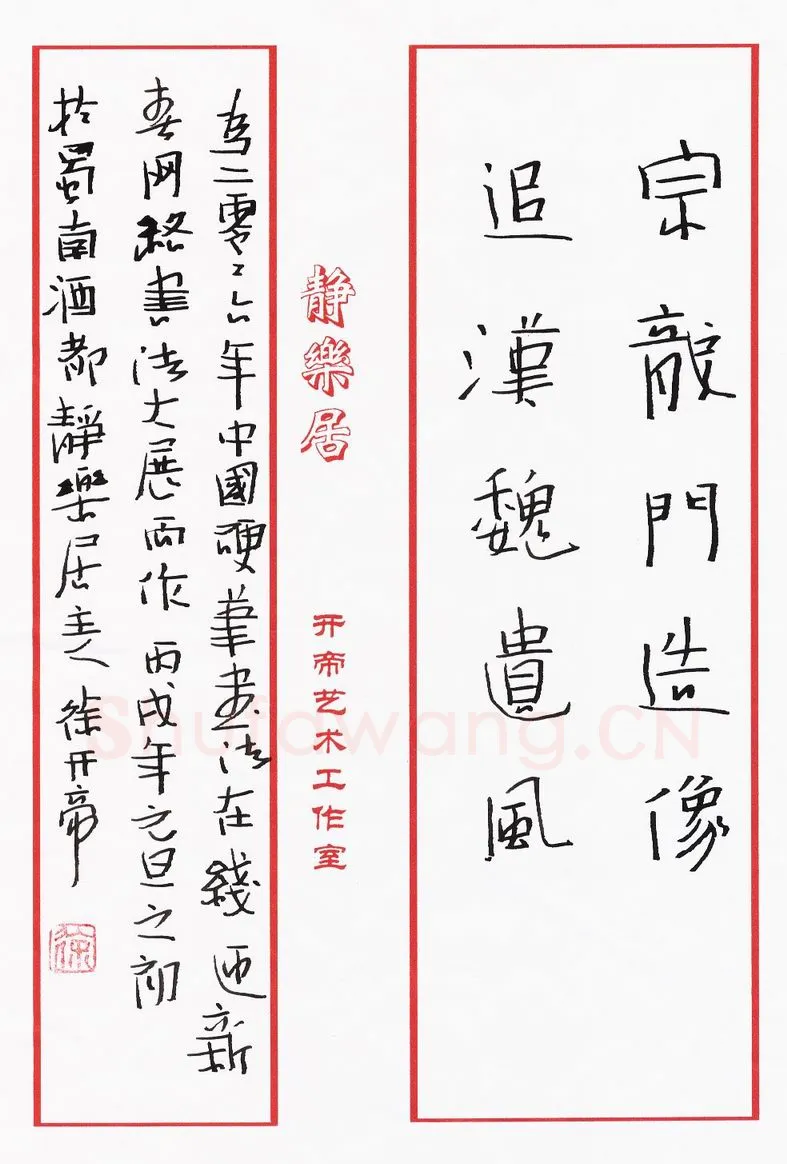 宗龍門造像
追漢魏遺風
静樂居
开帝艺术工作室
為二零〻六年中國硬筆書法在綫迎新
春网絡書法大展而作 丙戌年元旦之
於蜀南酒都靜樂居主人 徐开帝
徐
Shufawang.CN